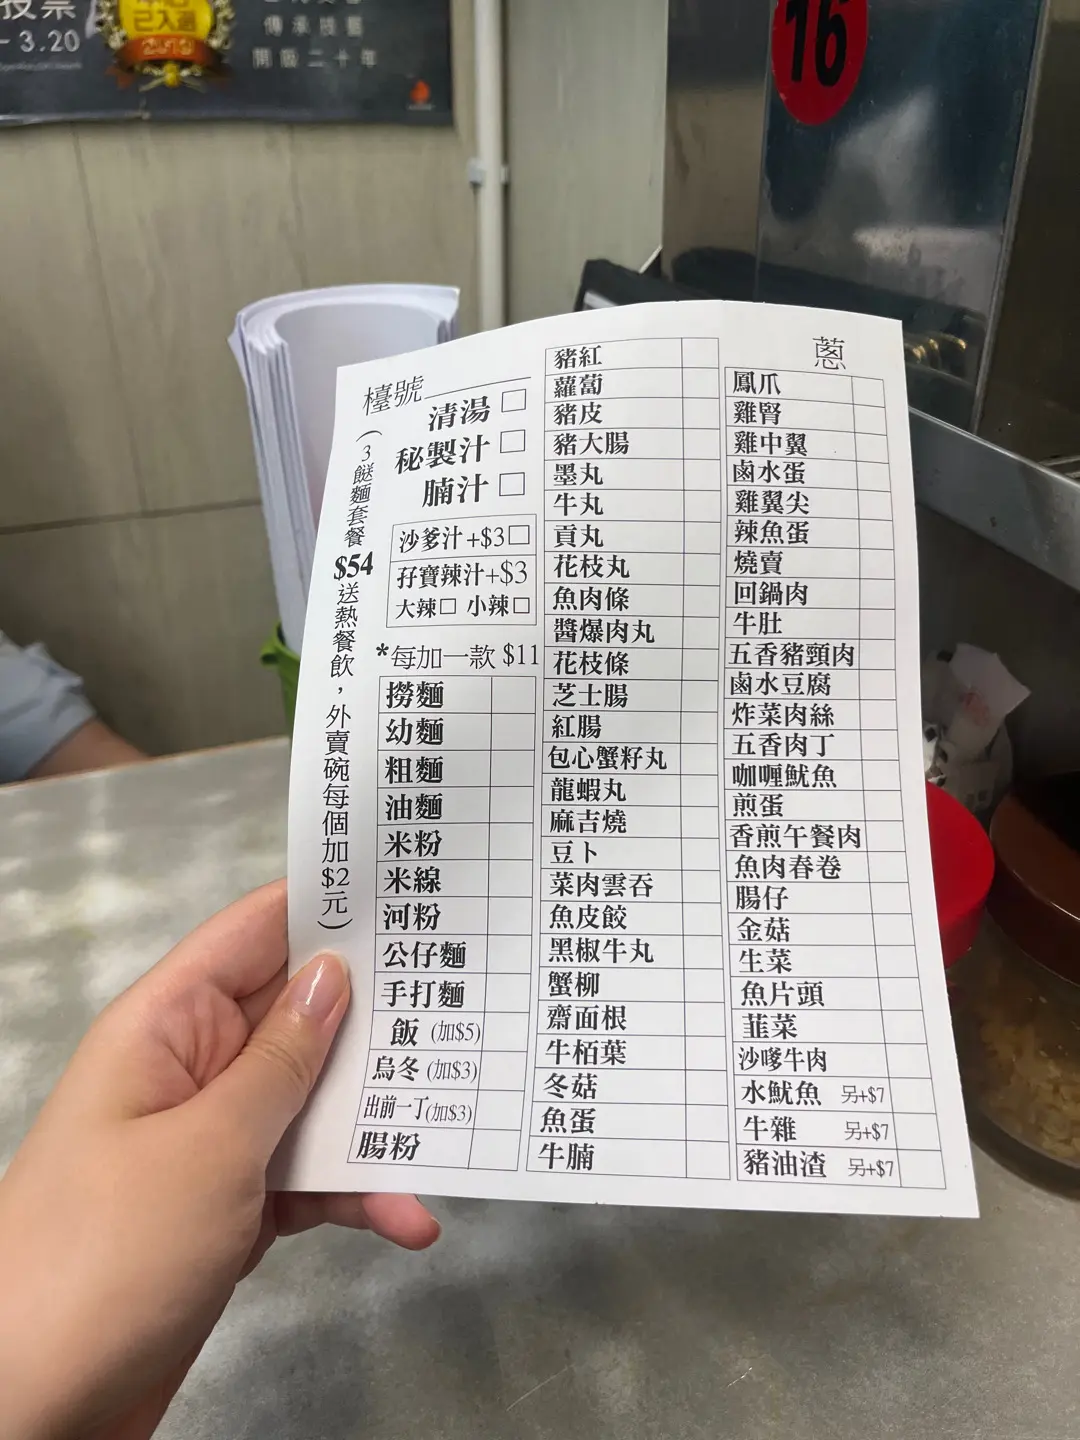 投票
- 3.20
2019
傳承技藝
開版二十年
16
檯號
清湯 □
秘製汁 □
腩汁 □
沙爹汁+$3□
孖寶辣汁+$3
大辣□ 小辣□
(3餸麵套餐$54送熱餐飲，外賣碗每個加$2元)
*每加一款 $11
撈麵
幼麵
粗麵
油麵
米粉
米線
河粉
公仔麵
手打麵
飯 (加$5)
烏冬 (加$3)
出前一丁(加$3)
腸粉
豬紅
蘿蔔
豬皮
豬大腸
墨丸
牛丸
貢丸
花枝丸
魚肉條
醬爆肉丸
花枝條
芝士腸
紅腸
包心蟹籽丸
龍蝦丸
麻吉燒
豆卜
菜肉雲吞
魚皮餃
黑椒牛丸
蟹柳
齋面根
牛栢葉
冬菇
魚蛋
牛腩
蔥
鳳爪
雞腎
雞中翼
鹵水蛋
雞翼尖
辣魚蛋
燒賣
回鍋肉
牛肚
五香豬頸肉
鹵水豆腐
炸菜肉絲
五香肉丁
咖喱魷魚
煎蛋
香煎午餐肉
魚肉春卷
腸仔
金菇
生菜
魚片頭
韮菜
沙嗲牛肉
水魷魚 另+$7
牛雜 另+$7
豬油渣 另+$7